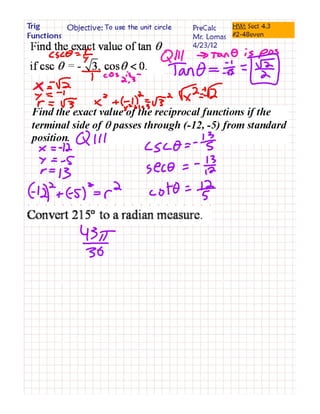 Trig Functions
Objective: To use the unit circle
PreCalc
Mr. Lomas
4/23/12
HW: Sect 4.3
#2-48even
cscθ = r/y
QIII → Tanθ is pos
Find the exact value of tan θ
if csc θ = -√3/1, cosθ < 0.
Tanθ = -1/-√2 = √2/2
x = -√2
y = -1
r = √3
x² + (-1)² = √3²
√x² = √2
Find the exact value of the reciprocal functions if the
terminal side of θ passes through (-12, -5) from standard
position.
QIII
x = -12
y = -5
r = 13
(-12)² + (-5)² = r²
cscθ = -13/5
secθ = -13/12
cotθ = 12/5
Convert 215° to a radian measure.
43π/36